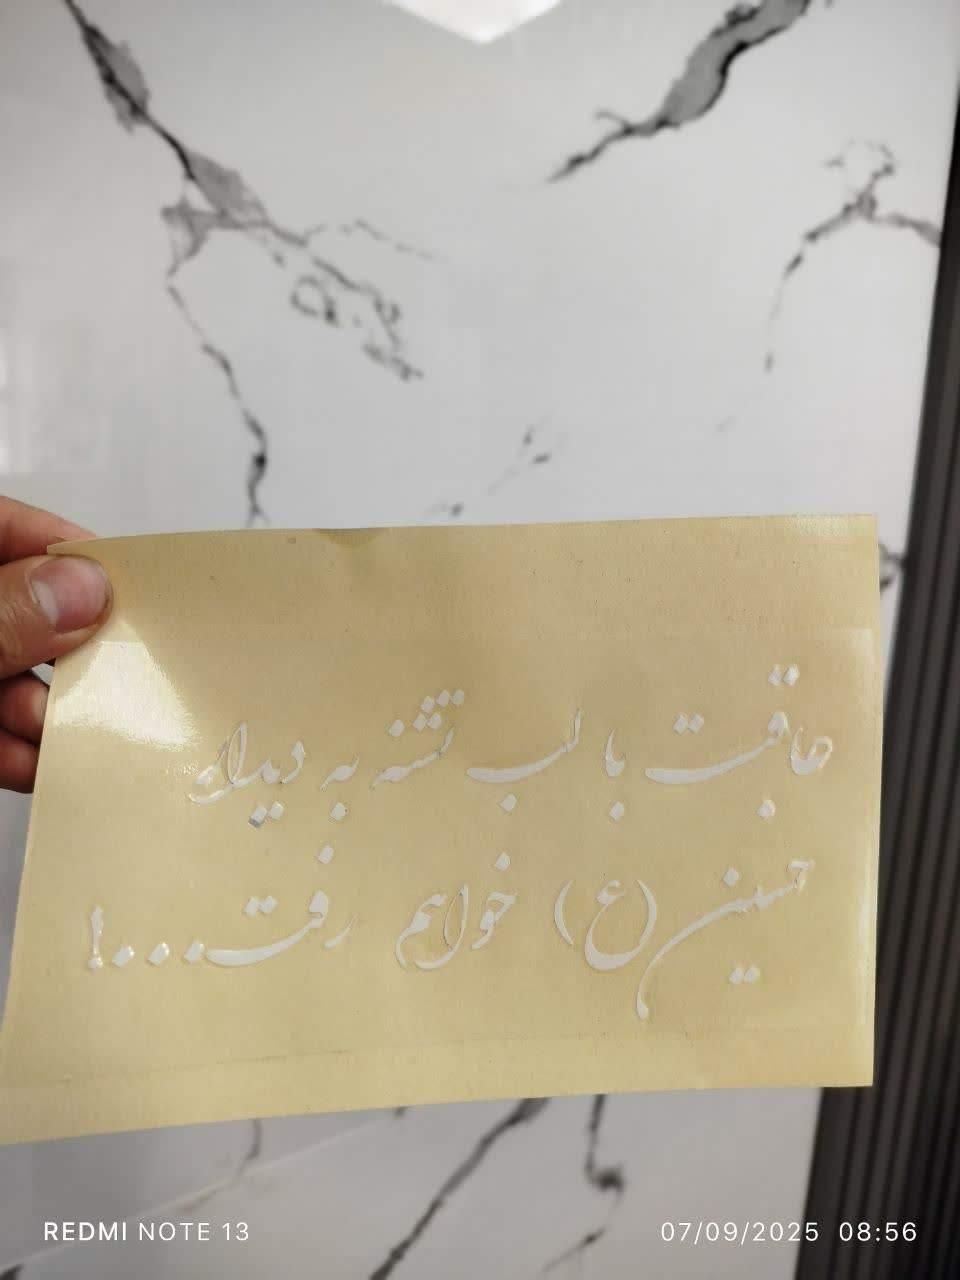 عاقبت با لب تشنه به دیدار
حسین (ع) خواهم رفت...!
REDMI NOTE 13
07/09/2025 08:56